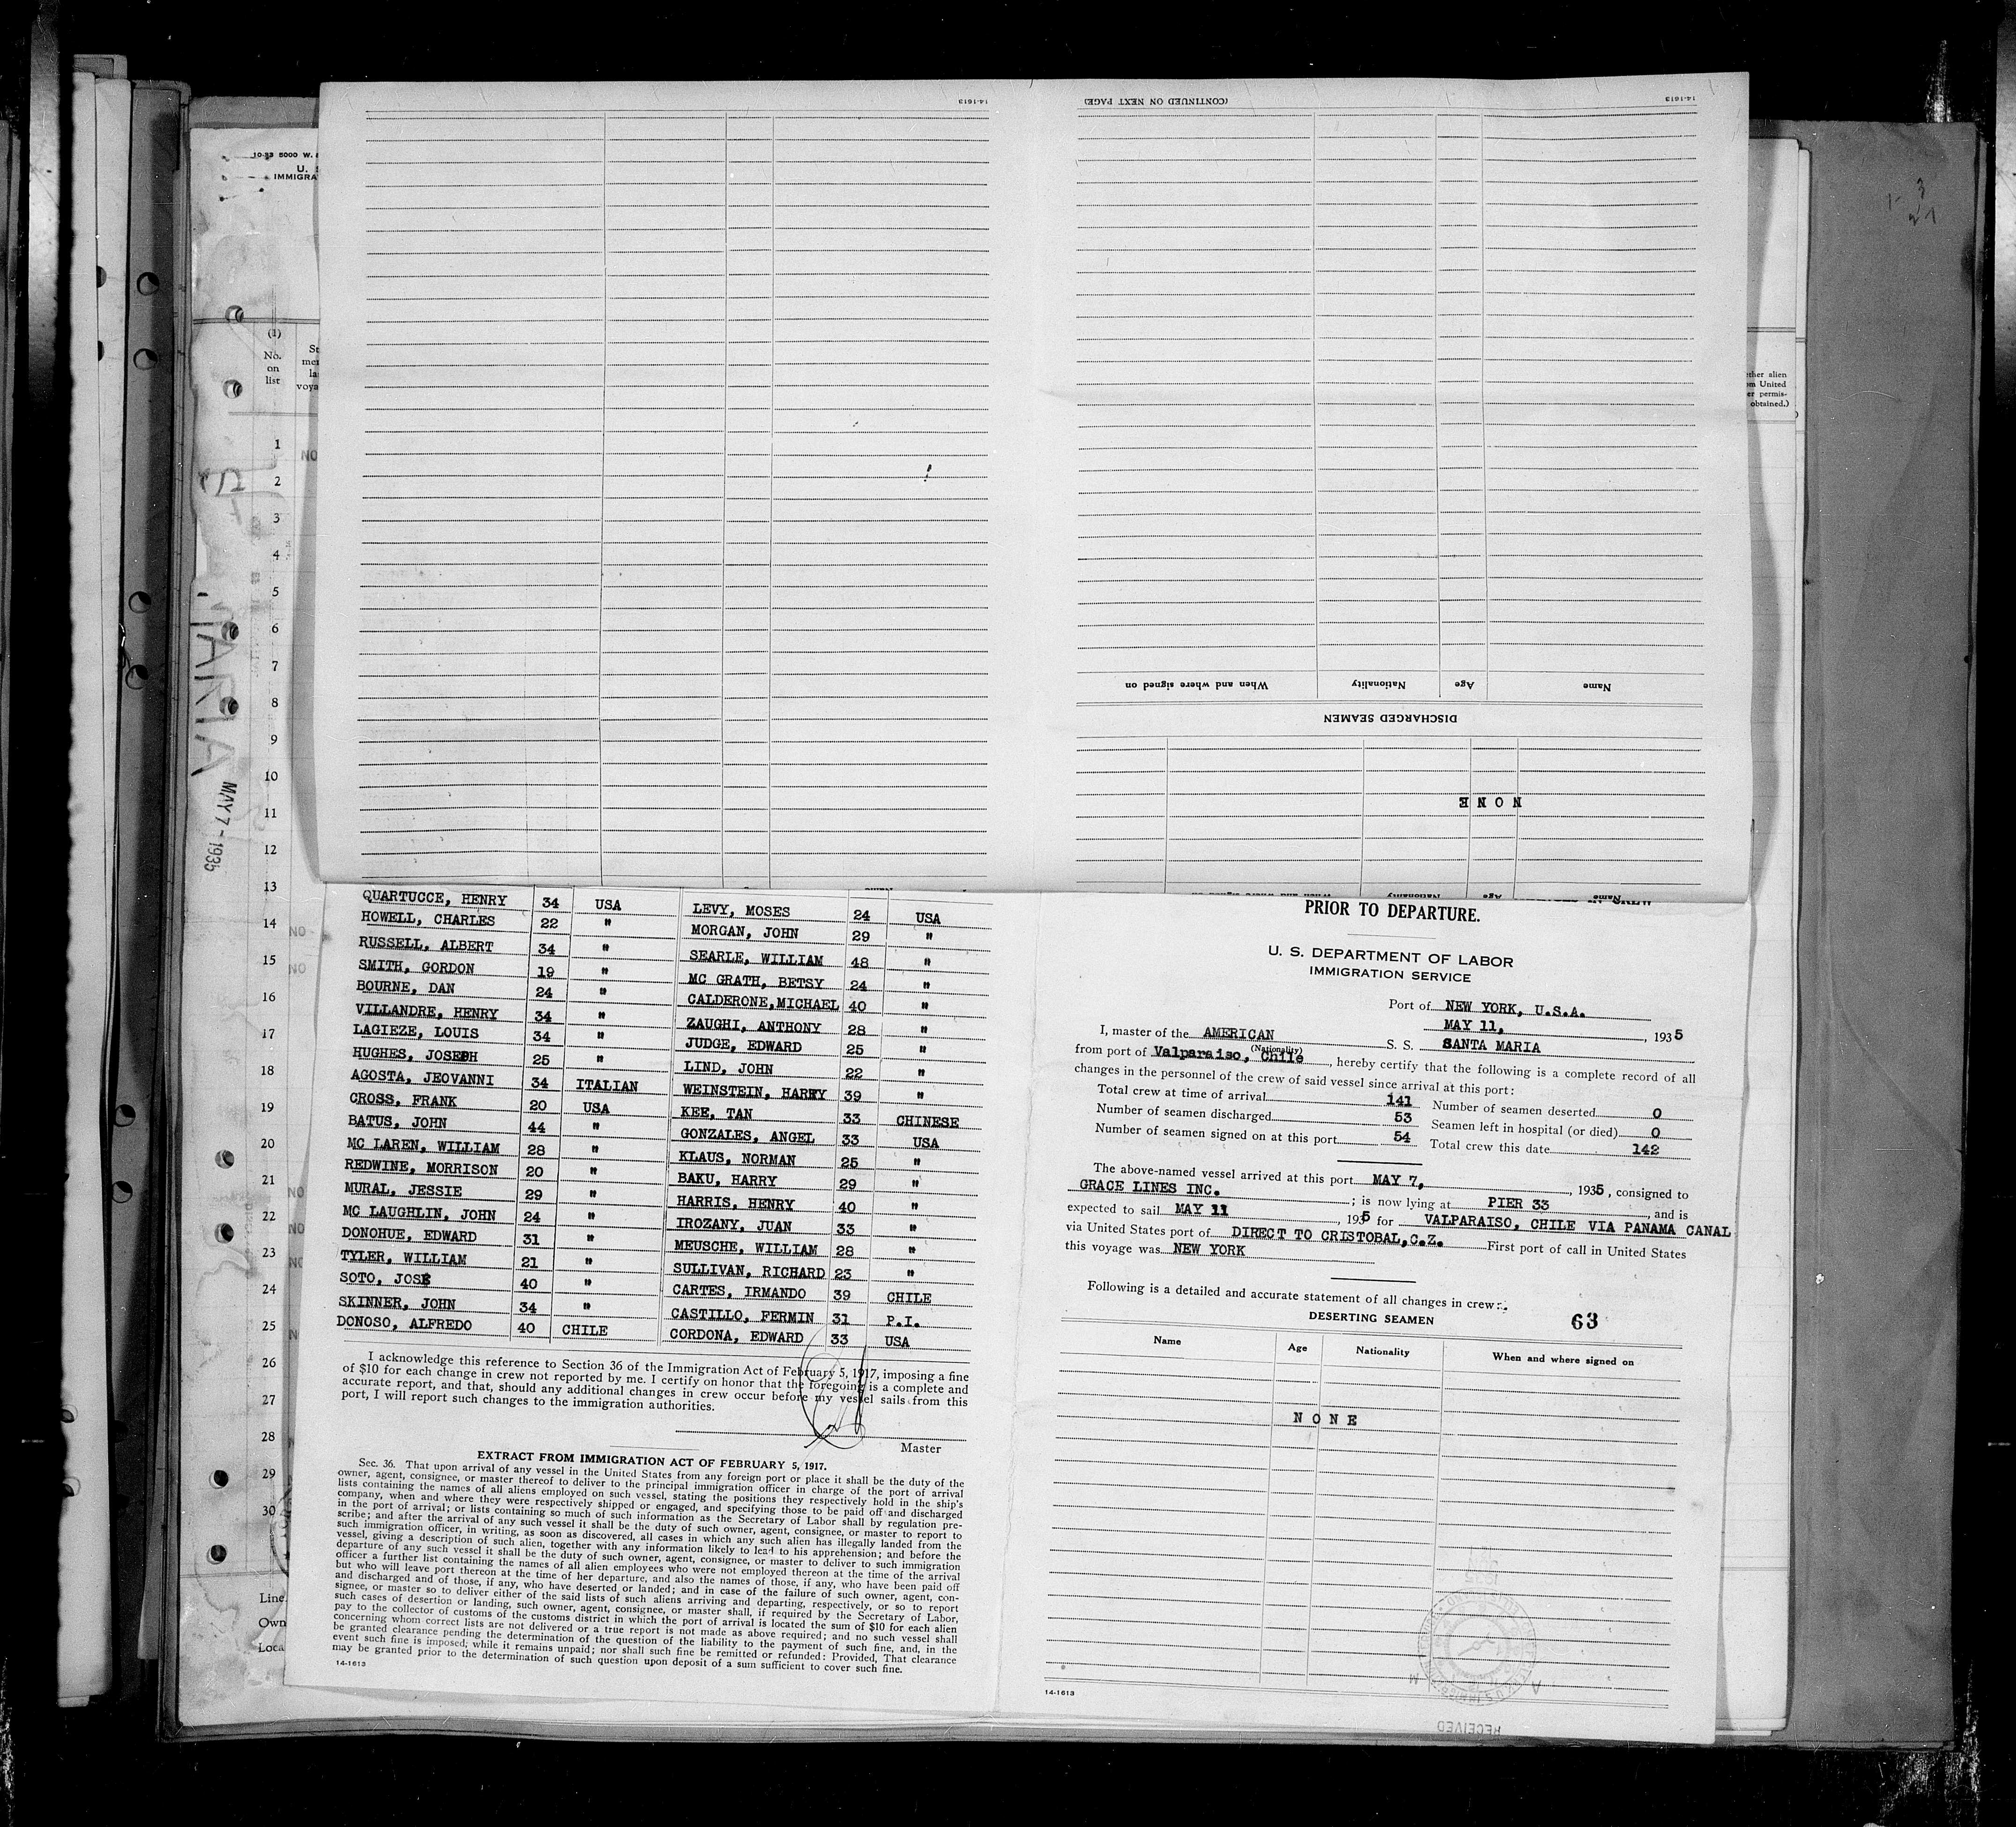 14-1613
(CONTINUED ON NEXT PAGE)
14-1613
Name Age Nationality When and where signed on
DISCHARGED SEAMEN
NONE
10-33 5000 W.
U. S
IMMIGRA
(1)
No.
on
list
1
2
3
4
5
6
7
8
9
10
11
12
13
14
15
16
17
18
19
20
21
22
23
24
25
26
27
28
29
30
Line
Own
Loca
MARIA
MAY 7 - 1935
ether alien
om United
er permis-
obtained.)
QUARTUCCE, HENRY 34 USA
HOWELL, CHARLES 22 "
RUSSELL, ALBERT 34 "
SMITH, GORDON 19 "
BOURNE, DAN 24 "
VILLANDRE, HENRY 34 "
LAGIEZE, LOUIS 34 "
HUGHES, JOSEPH 25 "
AGOSTA, JEOVANNI 34 ITALIAN
CROSS, FRANK 20 USA
BATUS, JOHN 44 "
MC LAREN, WILLIAM 28 "
REDWINE, MORRISON 20 "
MURAL, JESSIE 29 "
MC LAUGHLIN, JOHN 24 "
DONOHUE, EDWARD 31 "
TYLER, WILLIAM 21 "
SOTO, JOSE 40 "
SKINNER, JOHN 34 "
DONOSO, ALFREDO 40 CHILE
LEVY, MOSES 24 USA
MORGAN, JOHN 29 "
SEARLE, WILLIAM 48 "
MC GRATH, BETSY 24 "
CALDERONE,MICHAEL 40 "
ZAUGHI, ANTHONY 28 "
JUDGE, EDWARD 25 "
LIND, JOHN 22 "
WEINSTEIN, HARRY 39 "
KEE, TAN 33 CHINESE
GONZALES, ANGEL 33 USA
KLAUS, NORMAN 25 "
BAKU, HARRY 29 "
HARRIS, HENRY 40 "
IROZANY, JUAN 33 "
MEUSCHE, WILLIAM 28 "
SULLIVAN, RICHARD 23 "
CARTES, IRMANDO 39 CHILE
CASTILLO, FERMIN 31 P.I.
CORDONA, EDWARD 33 USA
I acknowledge this reference to Section 36 of the Immigration Act of February 5, 1917, imposing a fine
of $10 for each change in crew not reported by me. I certify on honor that the foregoing is a complete and
accurate report, and that, should any additional changes in crew occur before my vessel sails from this
port, I will report such changes to the immigration authorities.
Master
EXTRACT FROM IMMIGRATION ACT OF FEBRUARY 5, 1917.
Sec. 36. That upon arrival of any vessel in the United States from any foreign port or place it shall be the duty of the
owner, agent, consignee, or master thereof to deliver to the principal immigration officer in charge of the port of arrival
lists containing the names of all aliens employed on such vessel, stating the positions they respectively hold in the ship's
company, when and where they were respectively shipped or engaged, and specifying those to be paid off and discharged
in the port of arrival; or lists containing so much of such information as the Secretary of Labor shall by regulation pre-
scribe; and after the arrival of any such vessel it shall be the duty of such owner, agent, consignee, or master to report to
such immigration officer, in writing, as soon as discovered, all cases in which any such alien has illegally landed from the
vessel, giving a description of such alien, together with any information likely to lead to his apprehension; and before the
departure of any such vessel it shall be the duty of such owner, agent, consignee, or master to deliver to such immigration
officer a further list containing the names of all alien employees who were not employed thereon at the time of the arrival
but who will leave port thereon at the time of her departure, and also the names of those, if any, who have been paid off
and discharged and of those, if any, who have deserted or landed; and in case of the failure of such owner, agent, con-
signee, or master so to deliver either of the said lists of such aliens arriving and departing, respectively, or so to report
such cases of desertion or landing, such owner, agent, consignee, or master shall, if required by the Secretary of Labor,
pay to the collector of customs of the customs district in which the port of arrival is located the sum of $10 for each alien
concerning whom correct lists are not delivered or a true report is not made as above required; and no such vessel shall
be granted clearance pending the determination of the question of the liability to the payment of such fine, and, in the
event such fine is imposed, while it remains unpaid; nor shall such fine be remitted or refunded: Provided, That clearance
may be granted prior to the determination of such question upon deposit of a sum sufficient to cover such fine.
14-1613
PRIOR TO DEPARTURE.
U. S. DEPARTMENT OF LABOR
IMMIGRATION SERVICE
Port of NEW YORK, U.S.A.
MAY 11, , 1935
I, master of the AMERICAN S. S. SANTA MARIA
(Nationality)
from port of Valparaiso, Chile, hereby certify that the following is a complete record of all
changes in the personnel of the crew of said vessel since arrival at this port:
Total crew at time of arrival 141 Number of seamen deserted 0
Number of seamen discharged 53 Seamen left in hospital (or died) 0
Number of seamen signed on at this port 54 Total crew this date 142
The above-named vessel arrived at this port MAY 7, , 1935, consigned to
GRACE LINES INC. ; is now lying at PIER 33 and is
expected to sail MAY 11 , 1935 for VALPARAISO, CHILE VIA PANAMA CANAL
via United States port of DIRECT TO CRISTOBAL,C.Z. First port of call in United States
this voyage was NEW YORK
Following is a detailed and accurate statement of all changes in crew:
DESERTING SEAMEN 63
Name Age Nationality When and where signed on
NONE
14-1613
RECEIVED